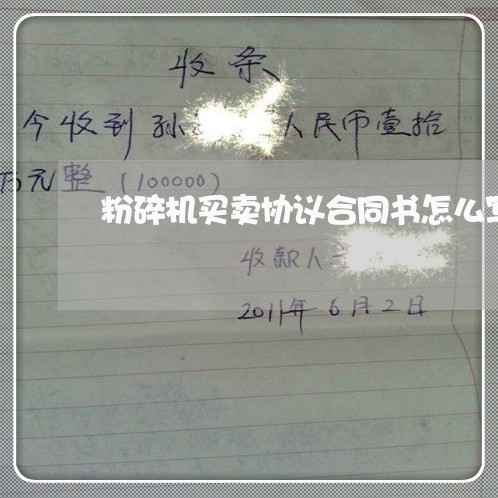 收条
今收到孙 人民币壹拾
万元整（100000）
粉碎机买卖协议合同书怎么写
收款人
2011年6月2日